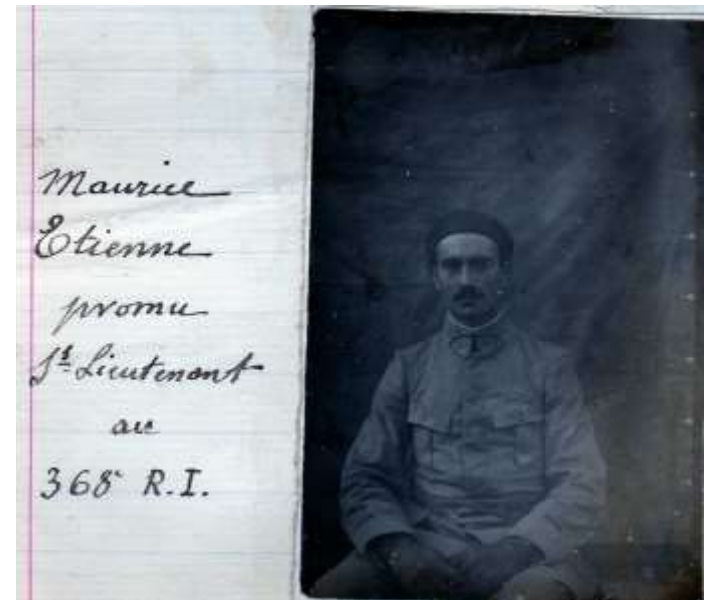 Maurice
Etienne
promu
Sˢ Lieutenant
au
368ᵉ R.I.